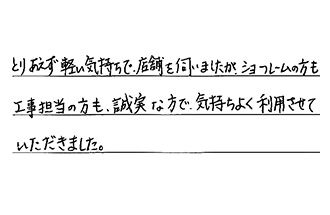 とりあえず軽い気持ちで、店舗を伺いましたが、ショールームの方も
工事担当の方も、誠実な方で、気持ちよく利用させて
いただきました。